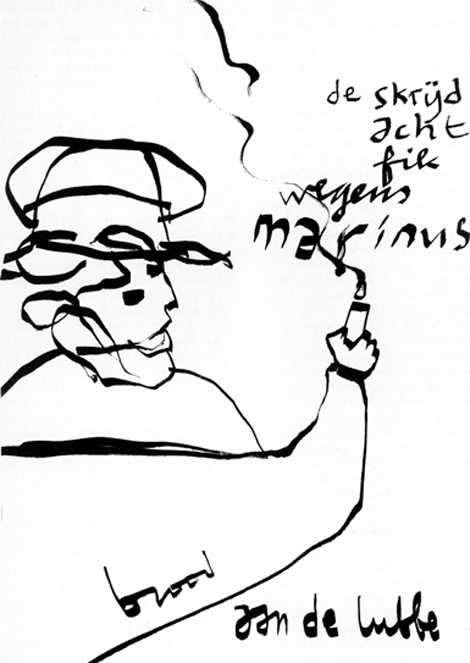 de skrijd
acht
fik
wegens
marinus
brood
aan de lubbe